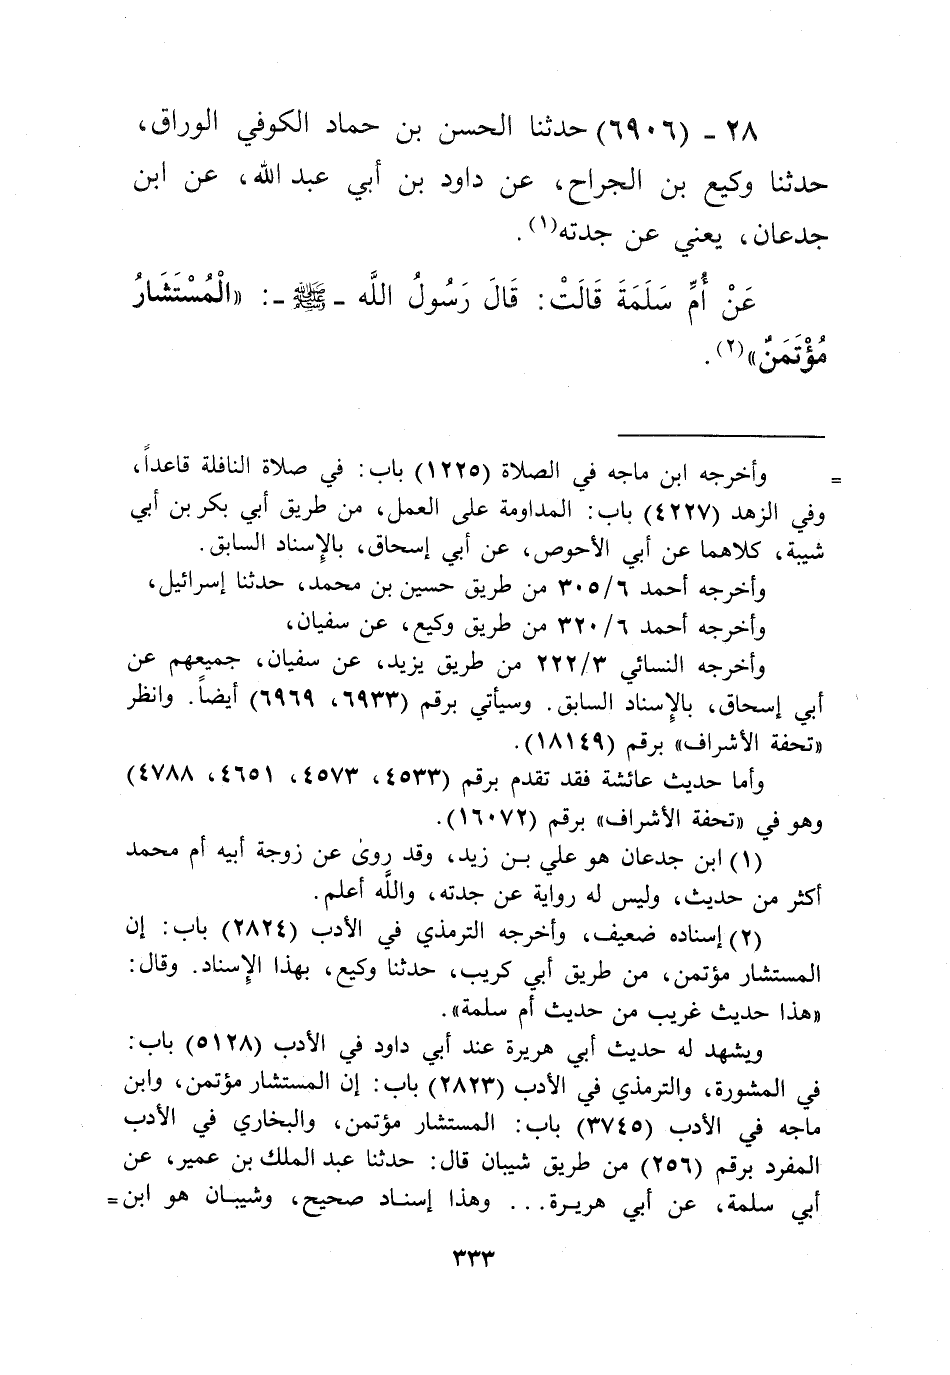 ٢٨ - (٦٩٠٦) حدثنا الحسن بن حماد الكوفي الوراق،
حدثنا وكيع بن الجراح، عن داود بن أبي عبد الله، عن ابن
جدعان، يعني عن جدته(١).
عَنْ أُمِّ سَلَمَةَ قَالَتْ: قَالَ رَسُولُ اللَّه - ﷺ -: «الْمُسْتَشَارُ
مُؤْتَمَنٌ»(٢).
= وأخرجه ابن ماجه في الصلاة (١٢٢٥) باب: في صلاة النافلة قاعداً،
وفي الزهد (٤٢٢٧) باب: المداومة على العمل، من طريق أبي بكر بن أبي
شيبة، كلاهما عن أبي الأحوص، عن أبي إسحاق، بالإسناد السابق.
وأخرجه أحمد ٣٠٥/٦ من طريق حسين بن محمد، حدثنا إسرائيل،
وأخرجه أحمد ٣٢٠/٦ من طريق وكيع، عن سفيان،
وأخرجه النسائي ٢٢٢/٣ من طريق يزيد، عن سفيان، جميعهم عن
أبي إسحاق، بالإسناد السابق. وسيأتي برقم (٦٩٣٣، ٦٩٦٩) أيضاً. وانظر
«تحفة الأشراف» برقم (١٨١٤٩).
وأما حديث عائشة فقد تقدم برقم (٤٥٣٣، ٤٥٧٣، ٤٦٥١، ٤٧٨٨)
وهو في «تحفة الأشراف» برقم (١٦٠٧٢).
(١) ابن جدعان هو علي بن زيد، وقد روىٰ عن زوجة أبيه أم محمد
أكثر من حديث، وليس له رواية عن جدته، واللَّه أعلم.
(٢) إسناده ضعيف، وأخرجه الترمذي في الأدب (٢٨٢٤) باب: إن
المستشار مؤتمن، من طريق أبي كريب، حدثنا وكيع، بهذا الإسناد. وقال:
«هذا حديث غريب من حديث أم سلمة».
ويشهد له حديث أبي هريرة عند أبي داود في الأدب (٥١٢٨) باب:
في المشورة، والترمذي في الأدب (٢٨٢٣) باب: إن المستشار مؤتمن، وابن
ماجه في الأدب (٣٧٤٥) باب: المستشار مؤتمن، والبخاري في الأدب
المفرد برقم (٢٥٦) من طريق شيبان قال: حدثنا عبد الملك بن عمير، عن
أبي سلمة، عن أبي هريرة... وهذا إسناد صحيح، وشيبان هو ابن =
٣٣٣